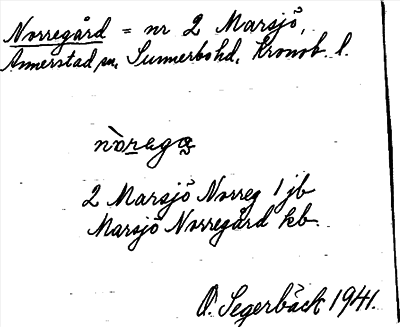 Norregård = nr 2 Marsjö,
Annerstad sn, Sunnerbo hd, Kronob. l.
nòrega
2 Marsjö Norreg 1 jb
Marsjö Norregård kb.
O. Segerbäck 1941.